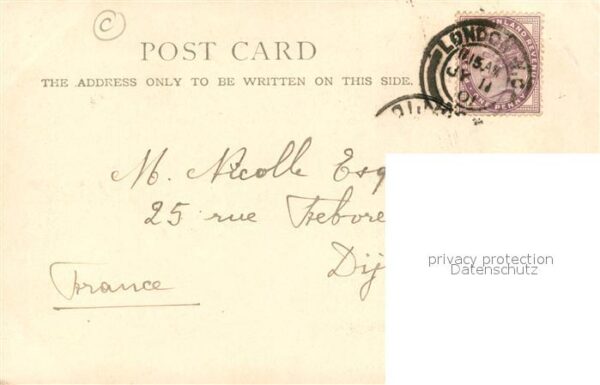 C
POST CARD
THE ADDRESS ONLY TO BE WRITTEN ON THIS SIDE.
INLAND REVENUE
ONE PENNY
LONDON
M. Nicolle Esq
25 rue
Dij
France
privacy protection
Datenschutz